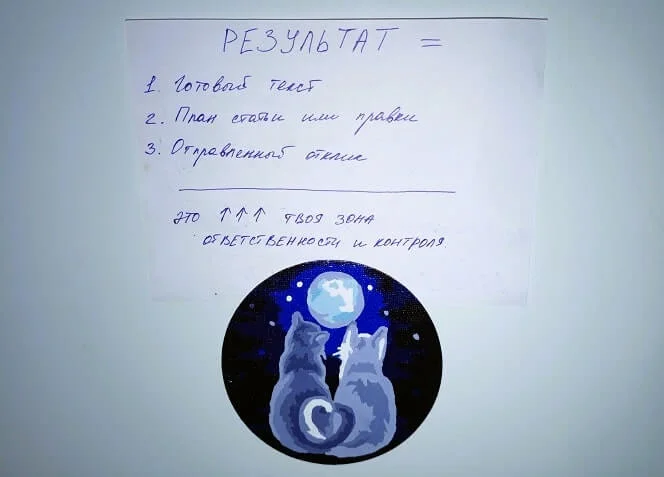 РЕЗУЛЬТАТ =
1. Готовый текст
2. План статьи или правки
3. Отправленный отклик
это ↑↑↑ твоя зона
ответственности и контроля.